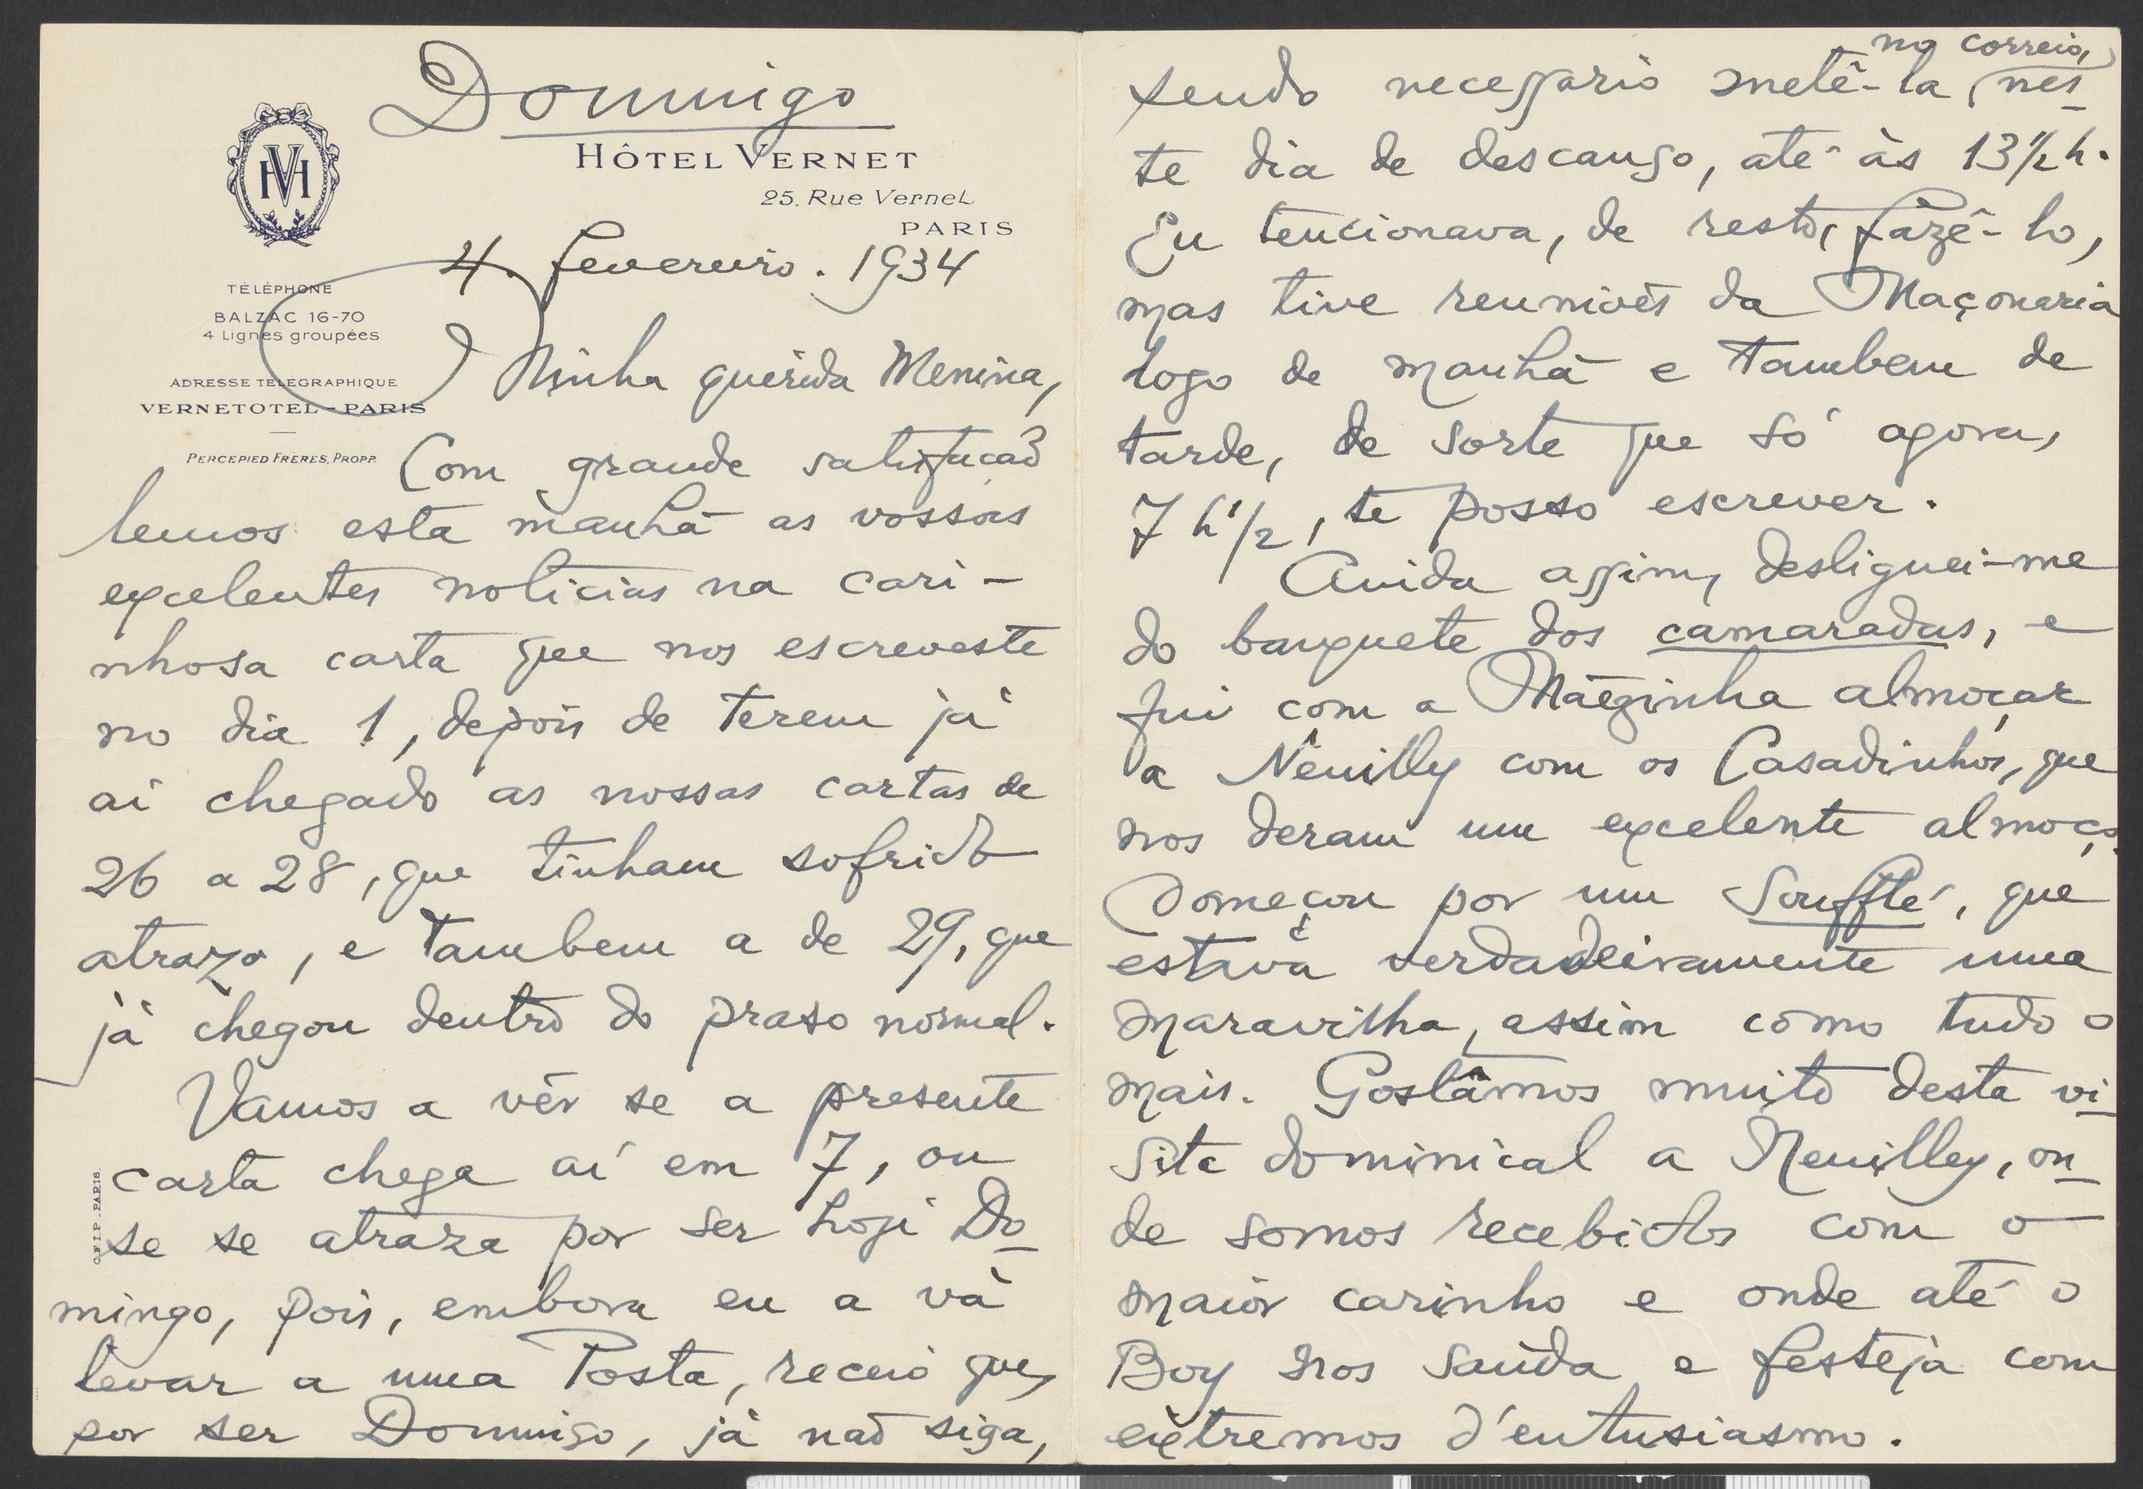 Domingo
HÔTEL VERNET
25. Rue Vernet
PARIS
HV
4. fevereiro. 1934
TÉLÉPHONE
BALZAC 16-70
4 Lignes groupées
ADRESSE TÉLÉGRAPHIQUE
VERNETOTEL-PARIS
PERCEPIED FRÈRES, PROPR.
Minha querida Menina,
Com grande satisfação
lemos esta manhã as vossas
excelentes noticias na cari-
nhosa carta que nos escreveste
no dia 1, depois de terem já
aí chegado as nossas cartas de
26 a 28, que tinham sofrido
atrazo, e tambem a de 29, que
já chegou dentro do praso normal.
Vamos a vêr se a presente
carta chega aí em 7, ou
se se atraza por ser hoje Do-
mingo, pois, embora eu a vá
levar a uma Posta, receio que,
por ser Domingo, já não siga,
C.F.I.P.-PARIS.
no correio,
sendo necessario metê-la nes-
te dia de descanso, até ás 13 1/2 h.
Eu tencionava, de resto, fazê-lo,
mas tive reuniões da Maçonaria
logo de manhã e tambem de
tarde, de sorte que só agora,
7 h 1/2, te posso escrever.
Ainda assim, desliguei-me
do banquete dos camaradas, e
fui com a Mãezinha almoçar
a Neuilly com os Casadinhos, que
nos deram um excelente almoço.
Começou por um Soufflé, que
estava verdadeiramente uma
maravilha, assim como tudo o
mais. Gostámos muito desta vi-
sita dominical a Neuilley, on-
de somos recebidos com o
maior carinho e onde até o
Boy nos saúda e festeja com
extremos d'entusiasmo.